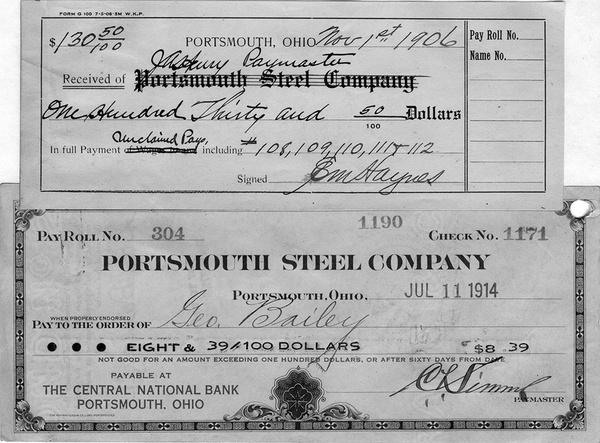 FORM G 100 7-5-06 5M W.K.P.
$130 50/100 PORTSMOUTH, OHIO Nov 1st 1906
Pay Roll No.
Name No.
Paymaster
Received of Portsmouth Steel Company
One Hundred Thirty and 50/100 Dollars
Unclaimed Pays,
In full Payment of including # 108, 109, 110, 111 + 112
Signed EmHaynes
1190
PAY ROLL No. 304 CHECK No. 1171
PORTSMOUTH STEEL COMPANY
PORTSMOUTH, OHIO, JUL 11 1914
WHEN PROPERLY ENDORSED
PAY TO THE ORDER OF Geo. Bailey
EIGHT & 39/100 DOLLARS $8.39
NOT GOOD FOR AN AMOUNT EXCEEDING ONE HUNDRED DOLLARS, OR AFTER SIXTY DAYS FROM DATE
PAYABLE AT
THE CENTRAL NATIONAL BANK
PORTSMOUTH, OHIO
PAYMASTER